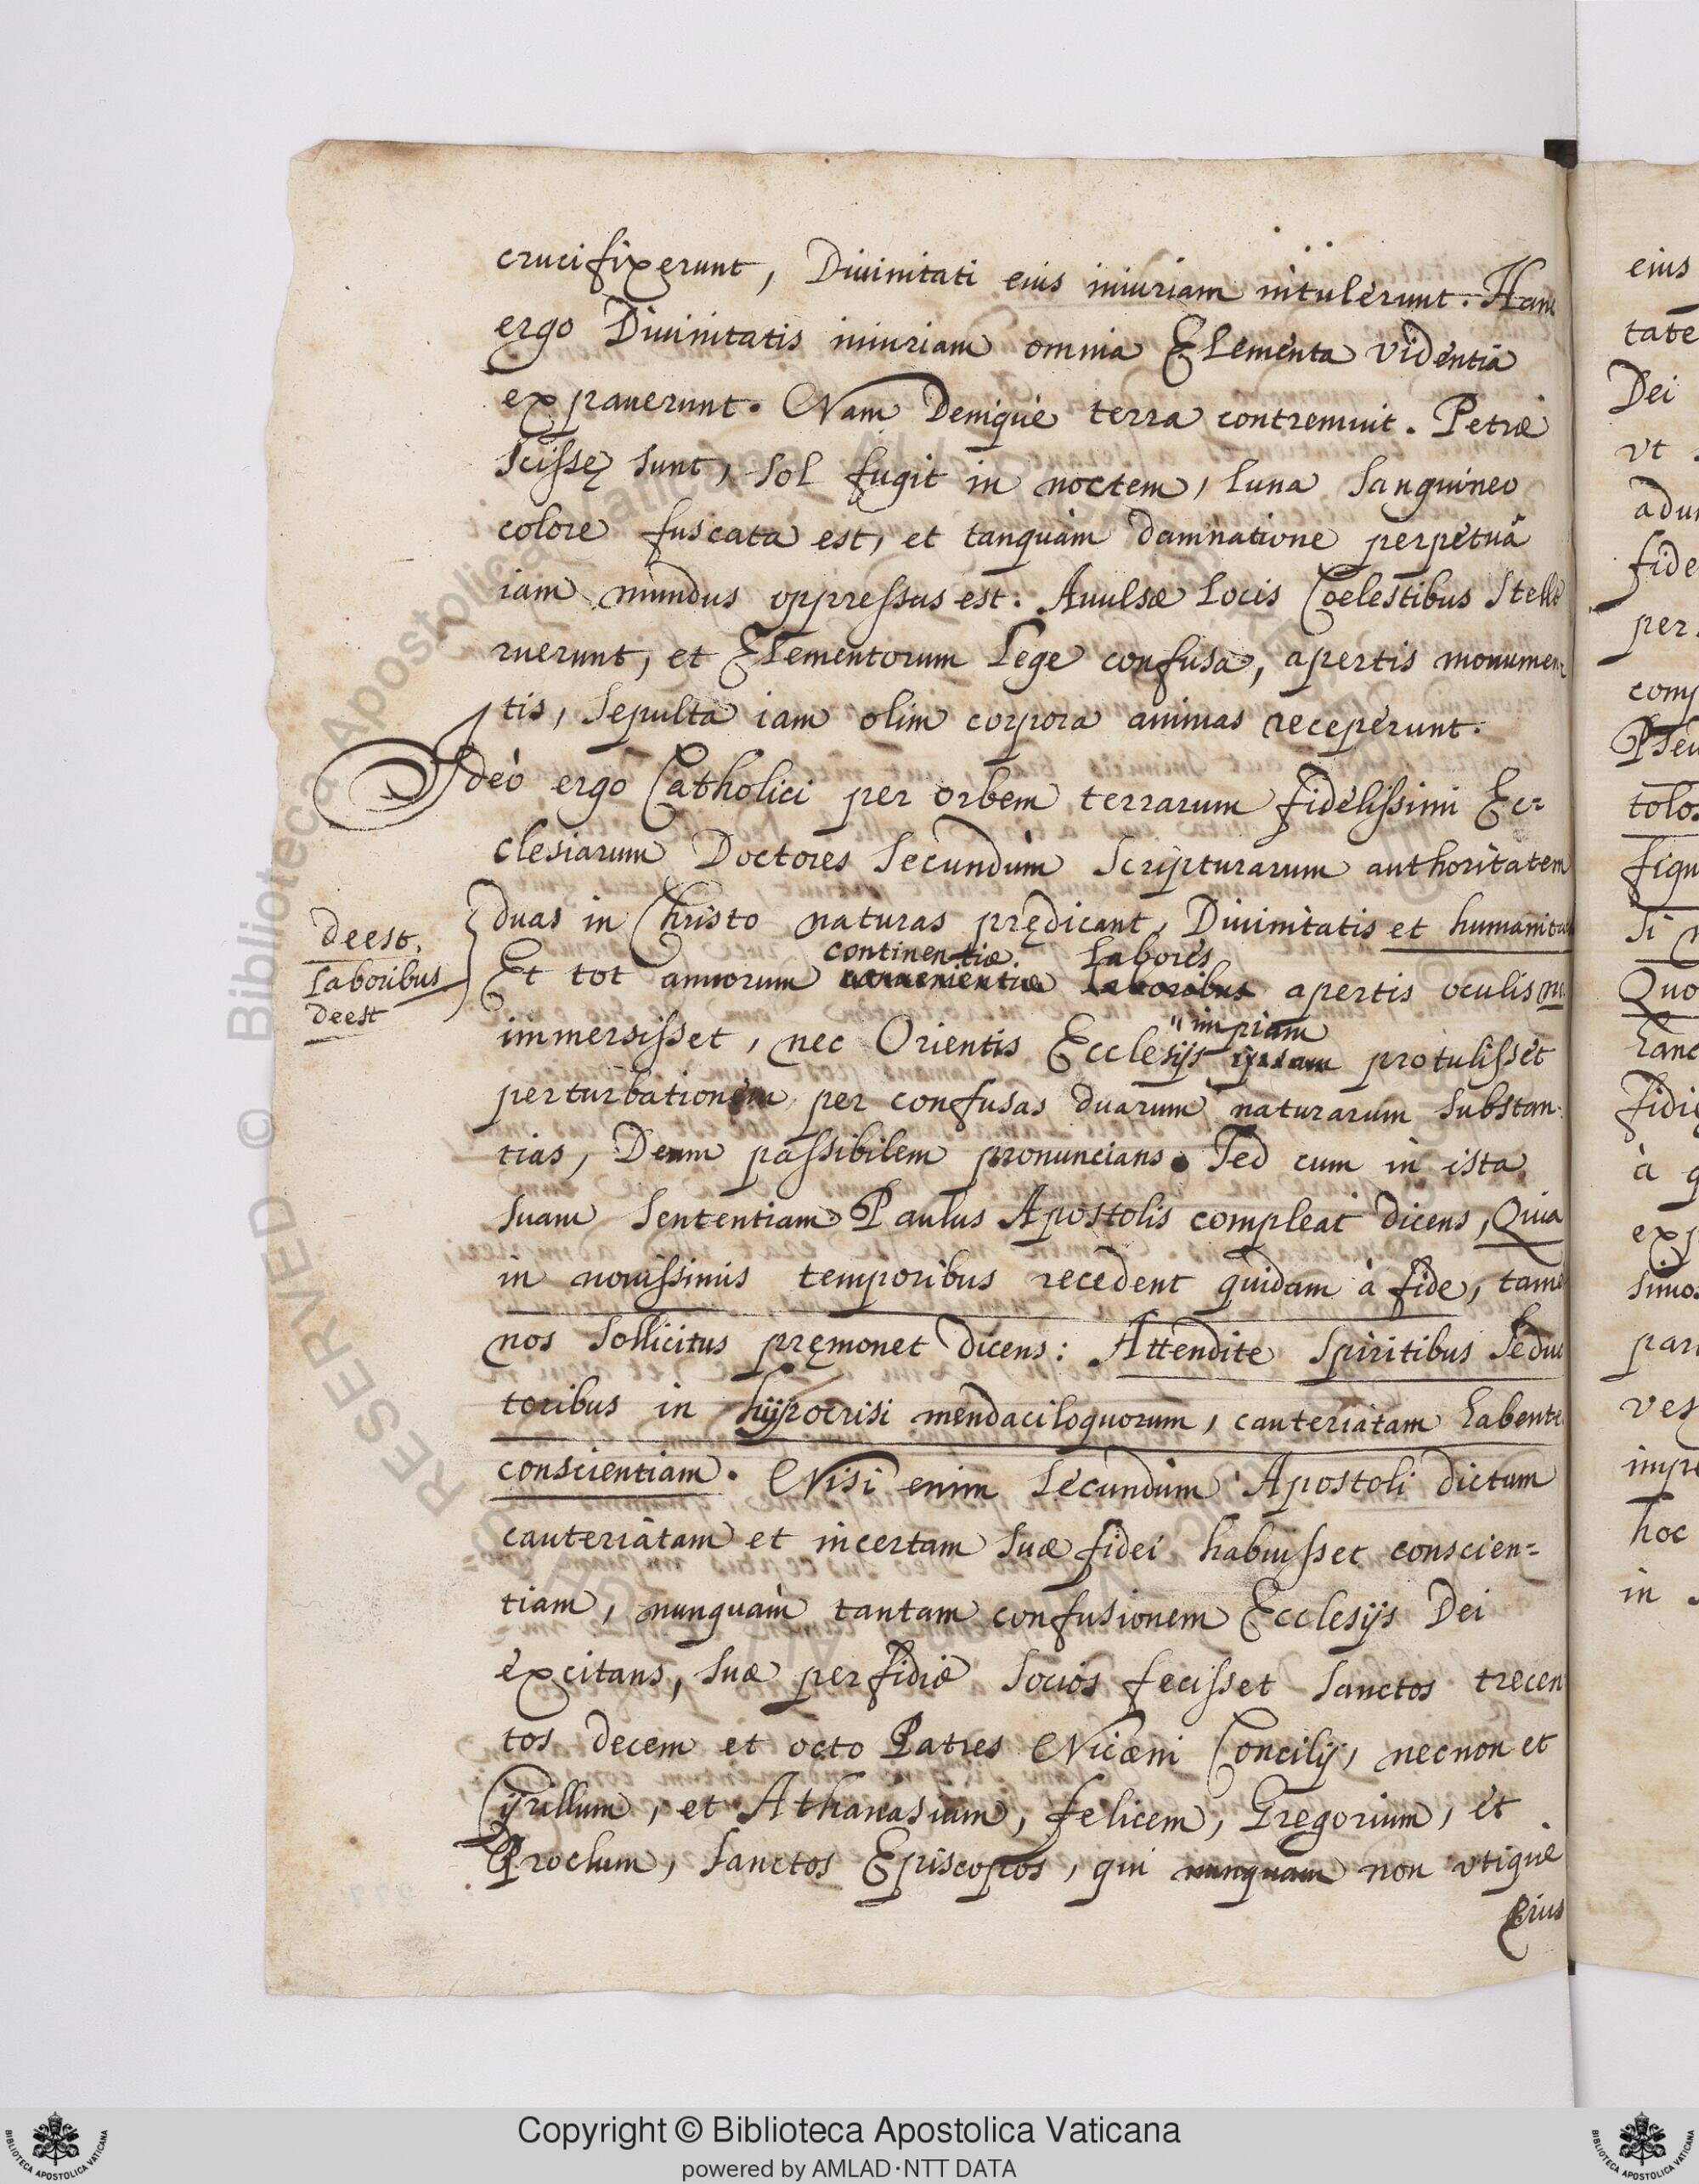 crucifixerunt, Diuinitati eius iniuriam intulerunt. Hanc
ergo Diuinitatis iniuriam omnia Elementa videntia
expauerunt. Nam Denique terra contremuit. Petræ
scissę sunt, Sol fugit in noctem, luna sanguineo
colore fuscata est, et tanquàm damnatione perpetuâ
iam mundus oppressus est. Auulsæ Locis Coelestibus Stellę
ruerunt, et Elementorum Lege confusa, apertis monumen
tis, sepulta iam olim corpora animas receperunt.
Ideò ergo Catholici per orbem terrarum fidelissimi Ec=
clesiarum Doctores secundùm Scripturarum authoritatem
duas in Christo naturas prędicant, Diuinitatis et humanitat
deest.
Laboribus
deest
continentiæ Labores
Et tot annorum Laboribus apertis oculis
impiam
immersisset, nec Orientis Ecclesijs ipsam protulisset
perturbationem per confusas duarum naturarum substan
tias, Deum passibilem pronuncians. Sed cum in ista
suam sententiam Paulus Apostolis compleat dicens, Quia
in nouissimis temporibus recedent quidam à fide, tame
nos sollicitus pręmonet dicens: Attendite Spiritibus Seduc
toribus in hypocrisi mendaciloquorum, cauteriatam habente
conscientiam. Nisi enim secundùm Apostoli dictum
cauteriatam et incertam suæ fidei habuisset conscien=
tiam, nunquàm tantam confusionem Ecclesijs Dei
excitans, suæ perfidiæ socios fecisset sanctos trecen
tos decem et octo Patres Nicæni Concilij, necnon et
Cyrillum, et Athanasium, felicem, Gregorium, et
Proclum, sanctos Episcopos, qui nunquam non vtique
eius
eius
tate
Dei
vt
adun
fide
per
comp
Pseu
tolos
figu
si
Quo
hanc
fidie
à q
exp
simos
pari
ves
impe
hoc
in
© Biblioteca Apostolica Vaticana
RESERVED
BIBLIOTECA APOSTOLICA VATICANA
Copyright © Biblioteca Apostolica Vaticana
powered by AMLAD·NTT DATA
BIBLIOTECA APOSTOLICA VATICANA